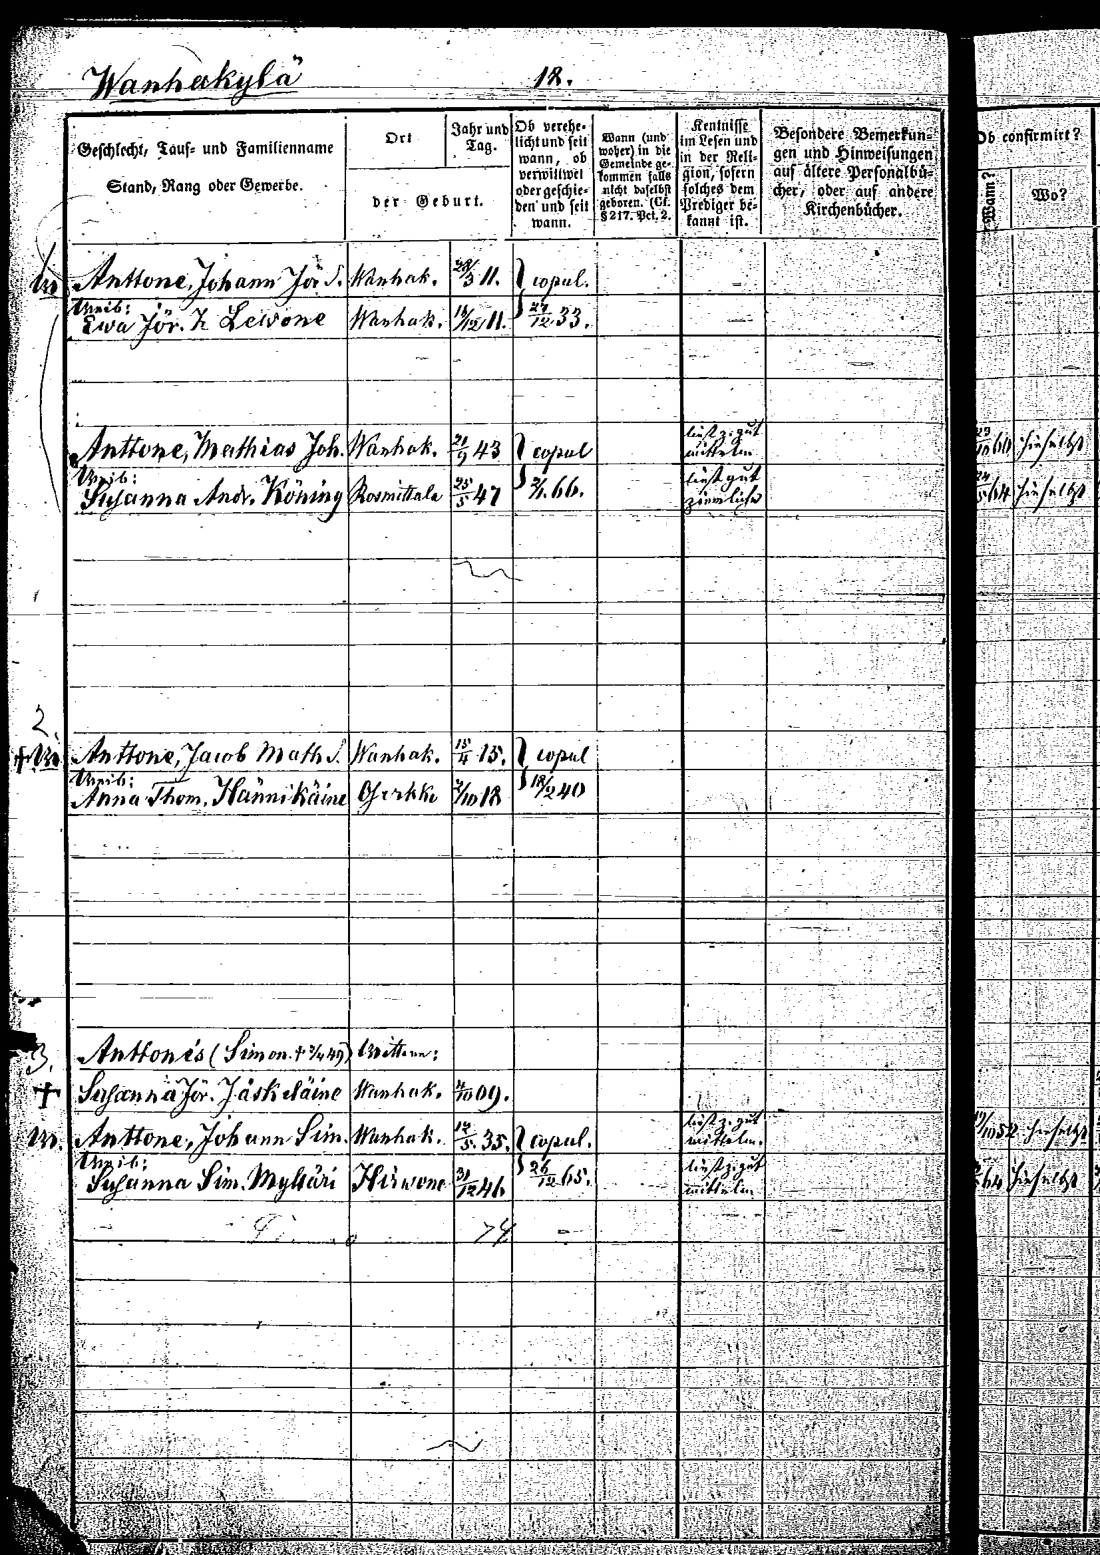 Wanhakylä 12.
Geschlecht, Tauf- und Familienname
Stand, Rang oder Gewerbe.
Ort
Jahr und
Tag.
der Geburt.
Ob verehe-
licht und seit
wann, ob
verwittwet
oder geschie-
den und seit
wann.
Wann (und
woher) in die
Gemeinde ge-
kommen falls
nicht daselbst
geboren. (Cf.
§ 217. Pct. 2.
Kentnisse
im Lesen und
in der Reli-
gion, sofern
solches dem
Prediger be-
kannt ist.
Besondere Bemerkun-
gen und Hinweisungen
auf ältere Personalbü-
cher, oder auf andere
Kirchenbücher.
Ob confirmirt?
Wann?
Wo?
Anttone, Johann Jör S. Wanhak. 28/3 11. copul.
Weib:
Ewa Jör. T. Lewone Wanhak. 12 11. 27/12 33.
Anttone, Mathias Joh. Wanhak. 21/9 43 copul liest z. gut
mittelm. 60 hieselbst
Weib:
Susanna Andr. Köning Rosmittala 25/5 47 2/1 66. liest gut
ziemlich 24/5 64 hieselbst
2.
+ W. Anttone, Jacob Math S. Wanhak. 15/4 15. copul
Weib:
Anna Thom. Hännikäine Oserkki 2/10 18 18/2 40
3. Anttonés (Simon. + 49) Wittwe:
+ Susanna Jör. Jäskeläine Wanhak. 4/10 09.
W. Anttone, Johann Sim. Wanhak. 12/5 35. copul. liest z. gut
mittelm. 10 52 hieselbst
Weib:
Susanna Sim. Mykäri Hirwone 31/12 46 26/12 65. liest z. gut
mittelm 64 hieselbst
74